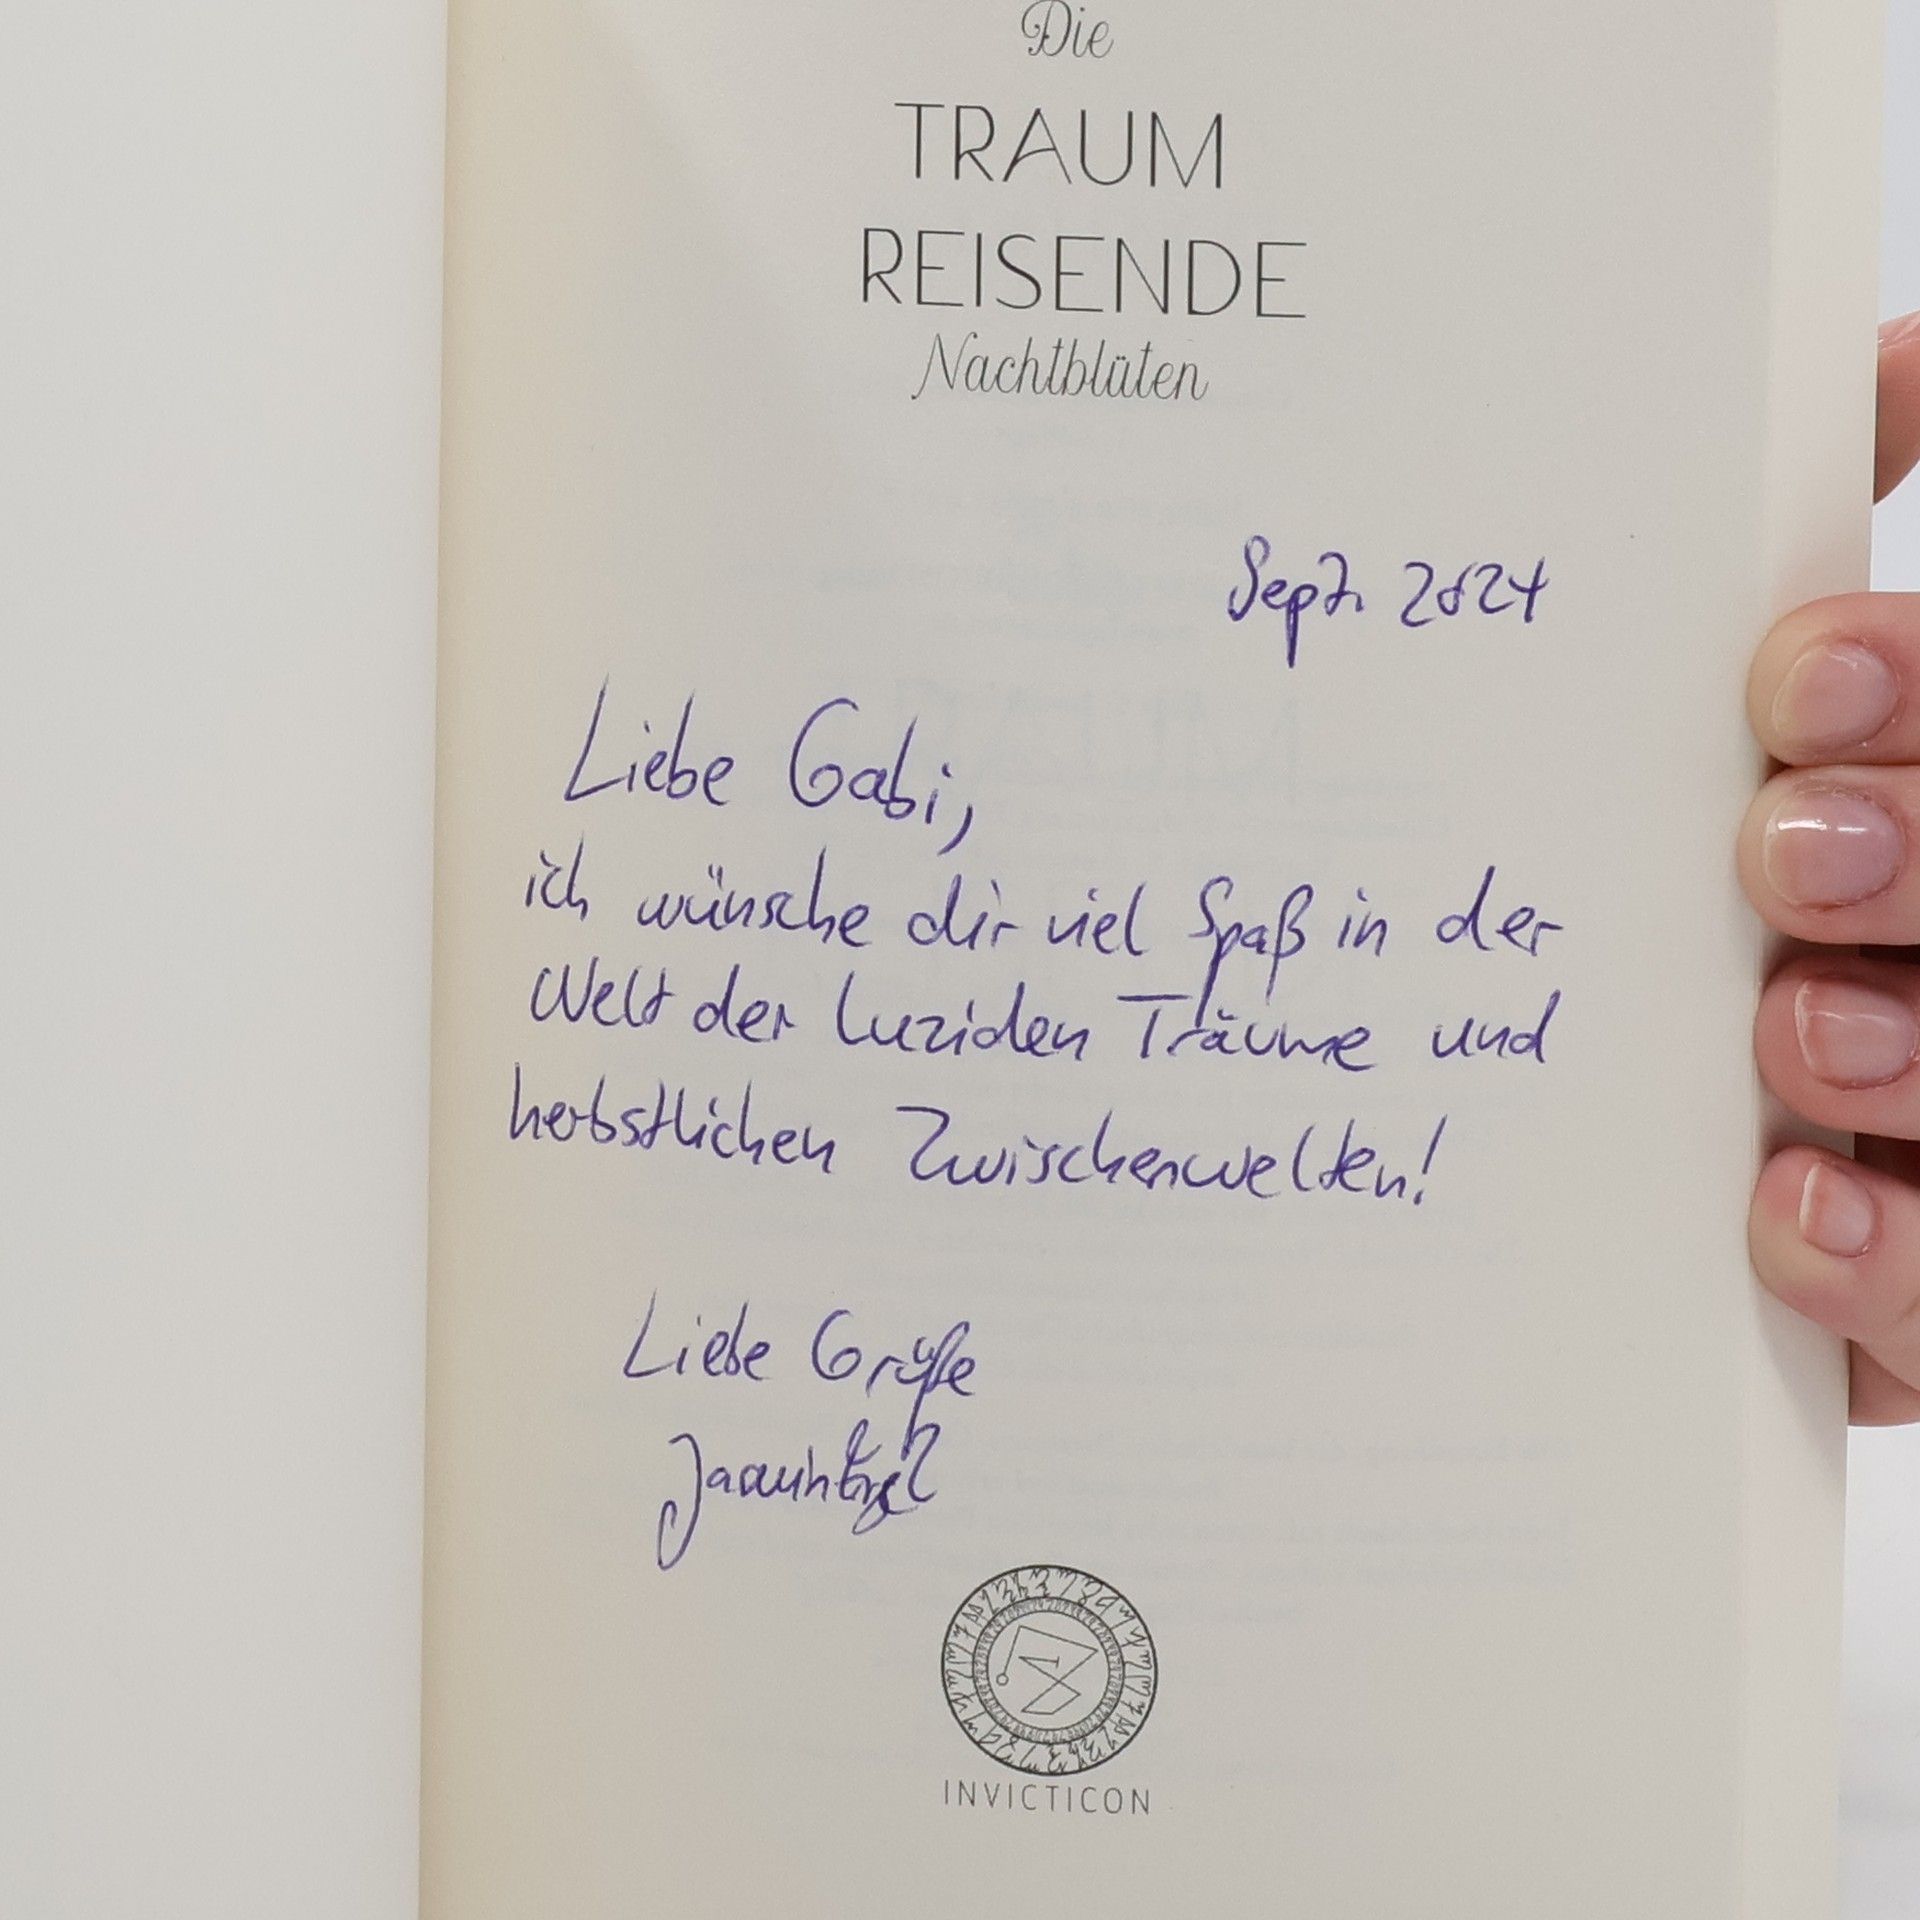 Die
TRAUM
REISENDE
Nachtblüten
Sept. 2024
Liebe Gabi,
ich wünsche dir viel Spaß in der
Welt der luziden Träume und
herbstlichen Zwischenwelten!
Liebe Grüße
INVICTICON